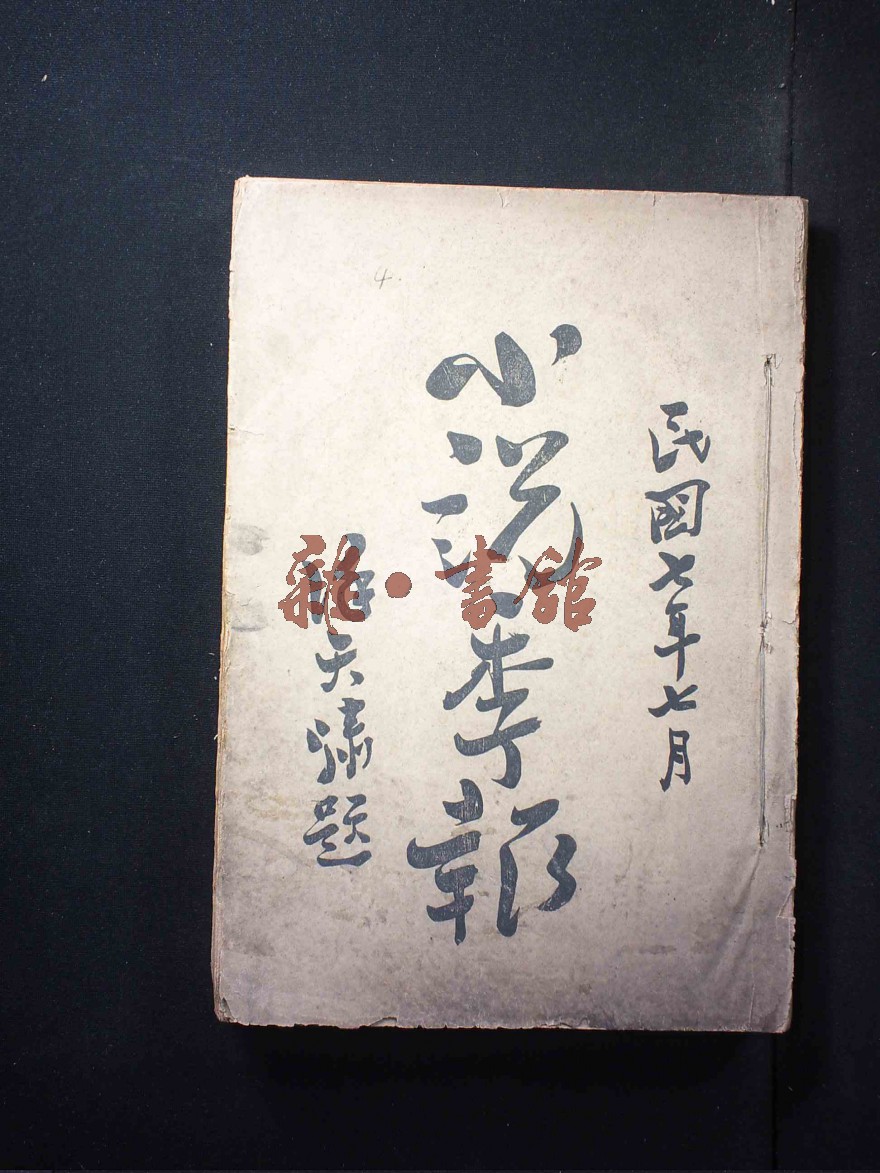 4.
民國七年七月
小說季報
天嘯題
雜·書館